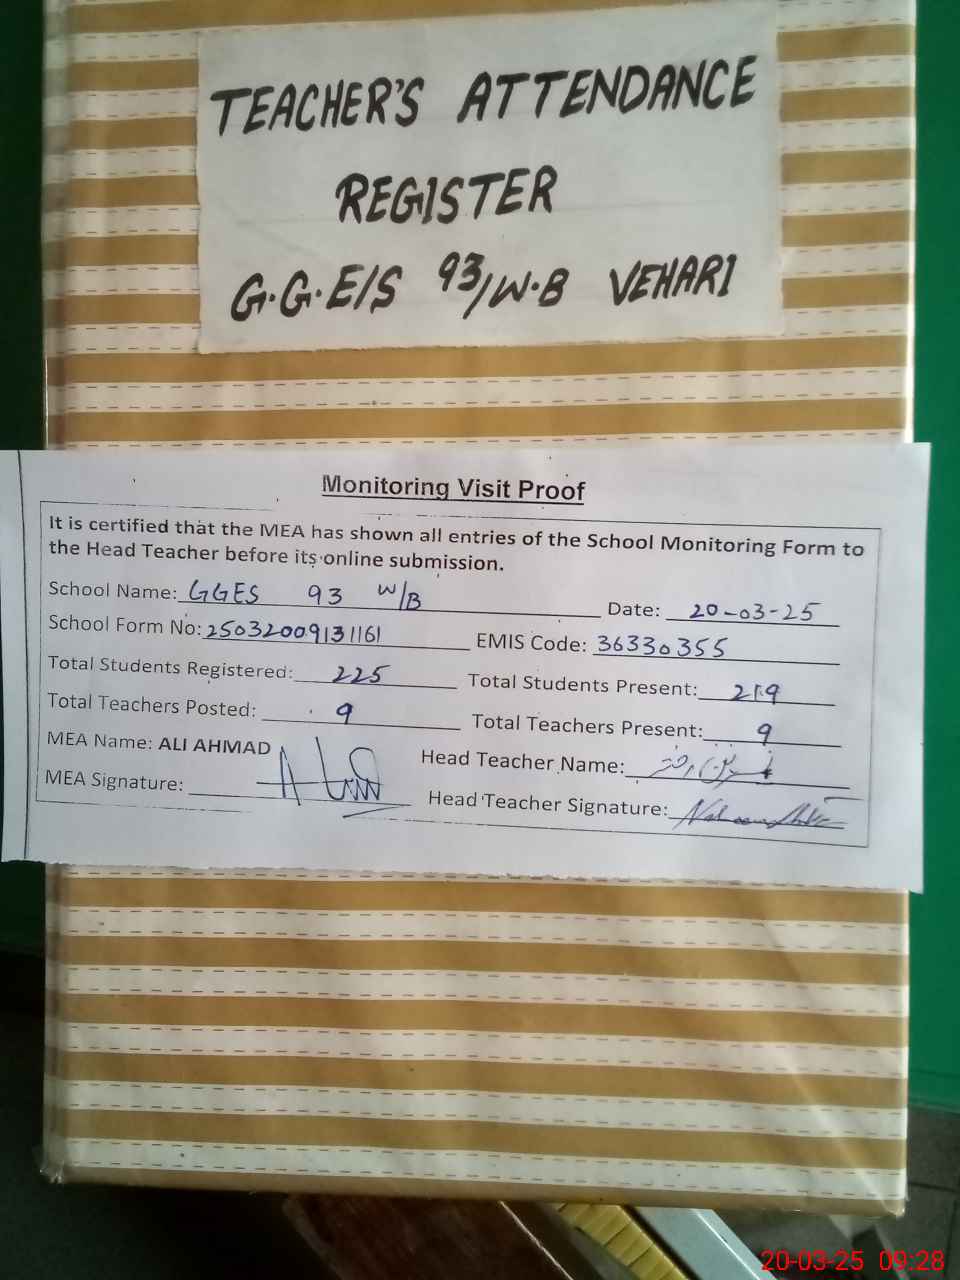 TEACHER'S ATTENDANCE
REGISTER
G.G.E/S 93/W.B VEHARI
Monitoring Visit Proof
It is certified that the MEA has shown all entries of the School Monitoring Form to
the Head Teacher before its online submission.
School Name: GGES 93 W/B Date: 20-03-25
School Form No: 25032009131161 EMIS Code: 36330355
Total Students Registered: 225 Total Students Present: 219
Total Teachers Posted: 9 Total Teachers Present: 9
MEA Name: ALI AHMAD Head Teacher Name:
MEA Signature: Head Teacher Signature:
20-03-25 09:28